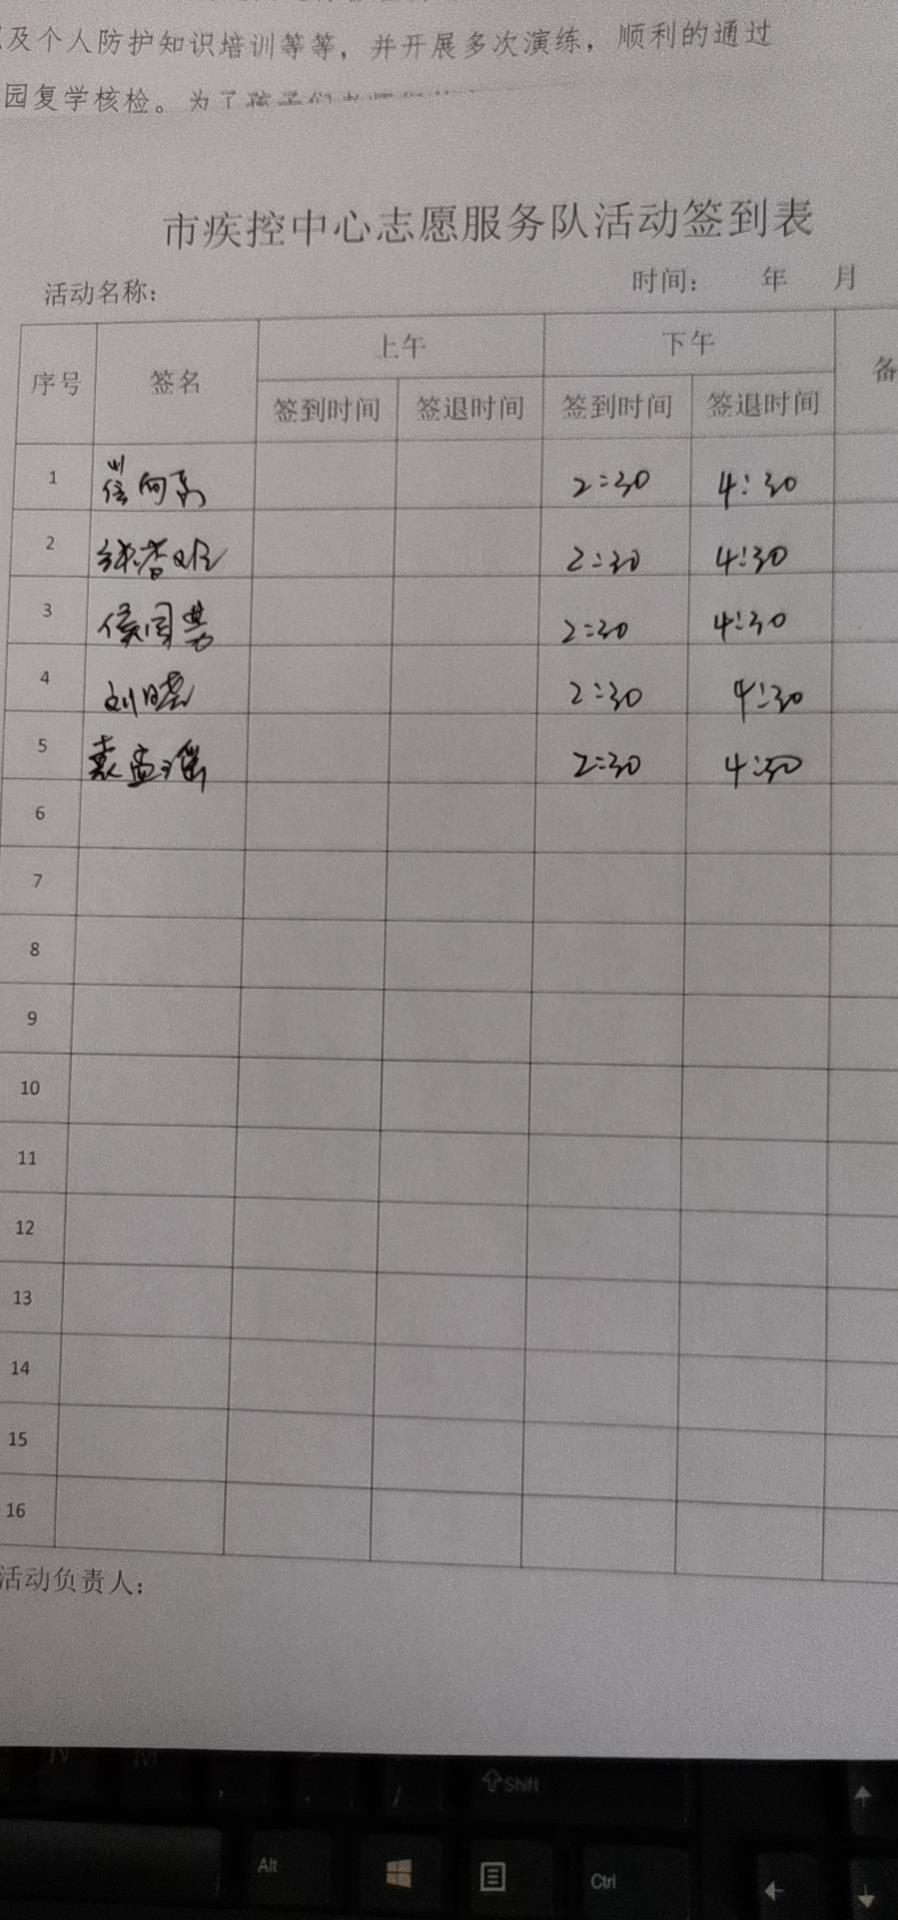 及个人防护知识培训等等，并开展多次演练，顺利的通过
园复学核检。为了孩子们
市疾控中心志愿服务队活动签到表
活动名称： 时间： 年 月
序号 签名 上午 下午 备
签到时间 签退时间 签到时间 签退时间
1 崔向高 2:30 4:30
2 2:30 4:30
3 侯国芳 2:30 4:30
4 刘晓 2:30 4:30
5 袁孟瑶 2:30 4:30
6
7
8
9
10
11
12
13
14
15
16
活动负责人：
N M
Shift
Alt Ctrl